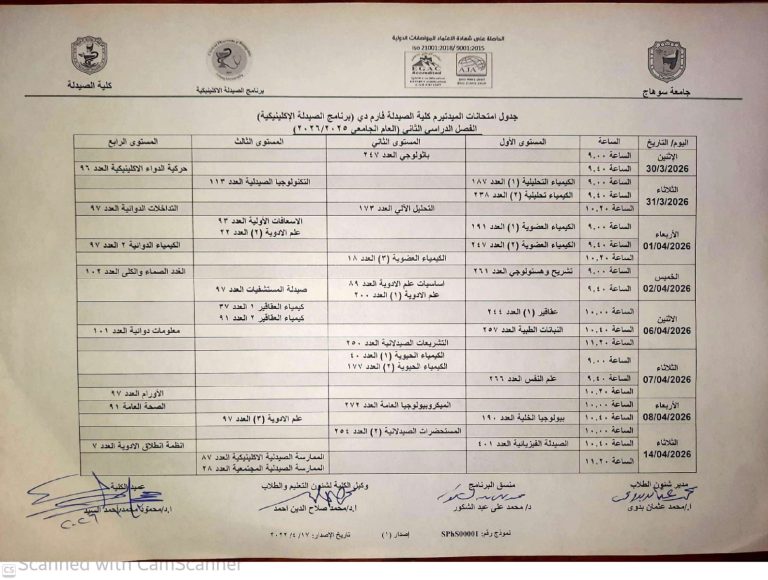 الحاصلة على شهادة الاعتماد للمواصفات الدولية
iso 21001:2018/ 9001:2015
EGAC
Accredited
AJA
جامعة سوهاج
برنامج الصيدلة الاكلينيكية
كلية الصيدلة
جدول امتحانات الميدتيرم كلية الصيدلة فارم دي (برنامج الصيدلة الإكلينيكية)
الفصل الدراسي الثاني (العام الجامعي ٢٠٢٦/٢٠٢٥)
اليوم/ التاريخ الساعة المستوى الأول المستوى الثاني المستوى الثالث المستوى الرابع
الإثنين 30/3/2026
الساعة ٩.٠٠ باثولوجي العدد ٢٤٧
الساعة ٩.٤٠ حركية الدواء الاكلينيكية العدد ٩٦
الثلاثاء 31/3/2026
الساعة ٩.٠٠ الكيمياء التحليلية (١) العدد ١٨٧ التكنولوجيا الصيدلية العدد ١١٣
الساعة ٩.٤٠ كيمياء تحليلية (٢) العدد ٢٣٨
الساعة ١٠.٢٠ التحليل الآلي العدد ١٧٣ التداخلات الدوائية العدد ٩٧
الأربعاء 01/04/2026
الساعة ٩.٠٠ الكيمياء العضوية (١) العدد ١٩١ الاسعافات الأولية العدد ٩٣
علم الادوية (٢) العدد ٢٢
الساعة ٩.٤٠ الكيمياء العضوية (٢) العدد ٢٤٧ الكيمياء الدوائية ٢ العدد ٩٧
الساعة ١٠.٢٠ الكيمياء العضوية (٣) العدد ١٨
الخميس 02/04/2026
الساعة ٩.٠٠ تشريح وهستولوجي العدد ٢٦١ الغدد الصماء والكلى العدد ١٠٢
الساعة ٩.٤٠ اساسيات علم الادوية العدد ٨٩ صيدلة المستشفيات العدد ٩٧
علم الادوية (١) العدد ٢٠٠
الاثنين 06/04/2026
الساعة ١٠.٠٠ عقاقير (١) العدد ٢٤٤ كيمياء العقاقير ١ العدد ٣٧
كيمياء العقاقير ٢ العدد ٩١
الساعة ١٠.٤٠ النباتات الطبية العدد ٢٥٧ معلومات دوائية العدد ١٠١
الساعة ١١.٢٠ التشريعات الصيدلانية العدد ٢٥٠
الثلاثاء 07/04/2026
الساعة ٩.٠٠ الكيمياء الحيوية (١) العدد ٤٠
الكيمياء الحيوية (٢) العدد ١٧٧
الساعة ٩.٤٠ علم النفس العدد ٢٦٦
الساعة ١٠.٢٠ الأورام العدد ٩٧
الأربعاء 08/04/2026
الساعة ١٠.٠٠ الميكروبيولوجيا العامة العدد ٢٧٢ الصحة العامة ٩١
الساعة ١٠.٤٠ بيولوجيا الخلية العدد ١٩٠ علم الادوية (٣) العدد ٩٧
الثلاثاء 14/04/2026
الساعة ١٠.٠٠ المستحضرات الصيدلانية (٢) العدد ٢٥٤
الساعة ١٠.٤٠ الصيدلة الفيزيائية العدد ٤٠١ انظمة انطلاق الادوية العدد ٧
الساعة ١١.٢٠ الممارسة الصيدلية الاكلينيكية العدد ٨٧
الممارسة الصيدلية المجتمعية العدد ٢٨
مدير شئون الطلاب منسق البرنامج وكيل الكلية لشئون التعليم والطلاب عميد الكلية
ا/محمد عثمان بدوى د/ محمد على عبد الشكور ا.د/محمد صلاح الدين احمد ا.د/محمود محمد احمد السيد
نموذج رقم: SPhS00001 إصدار (١) تاريخ الإصدار: ٢٠٢٢/٤/١٧
CS Scanned with CamScanner